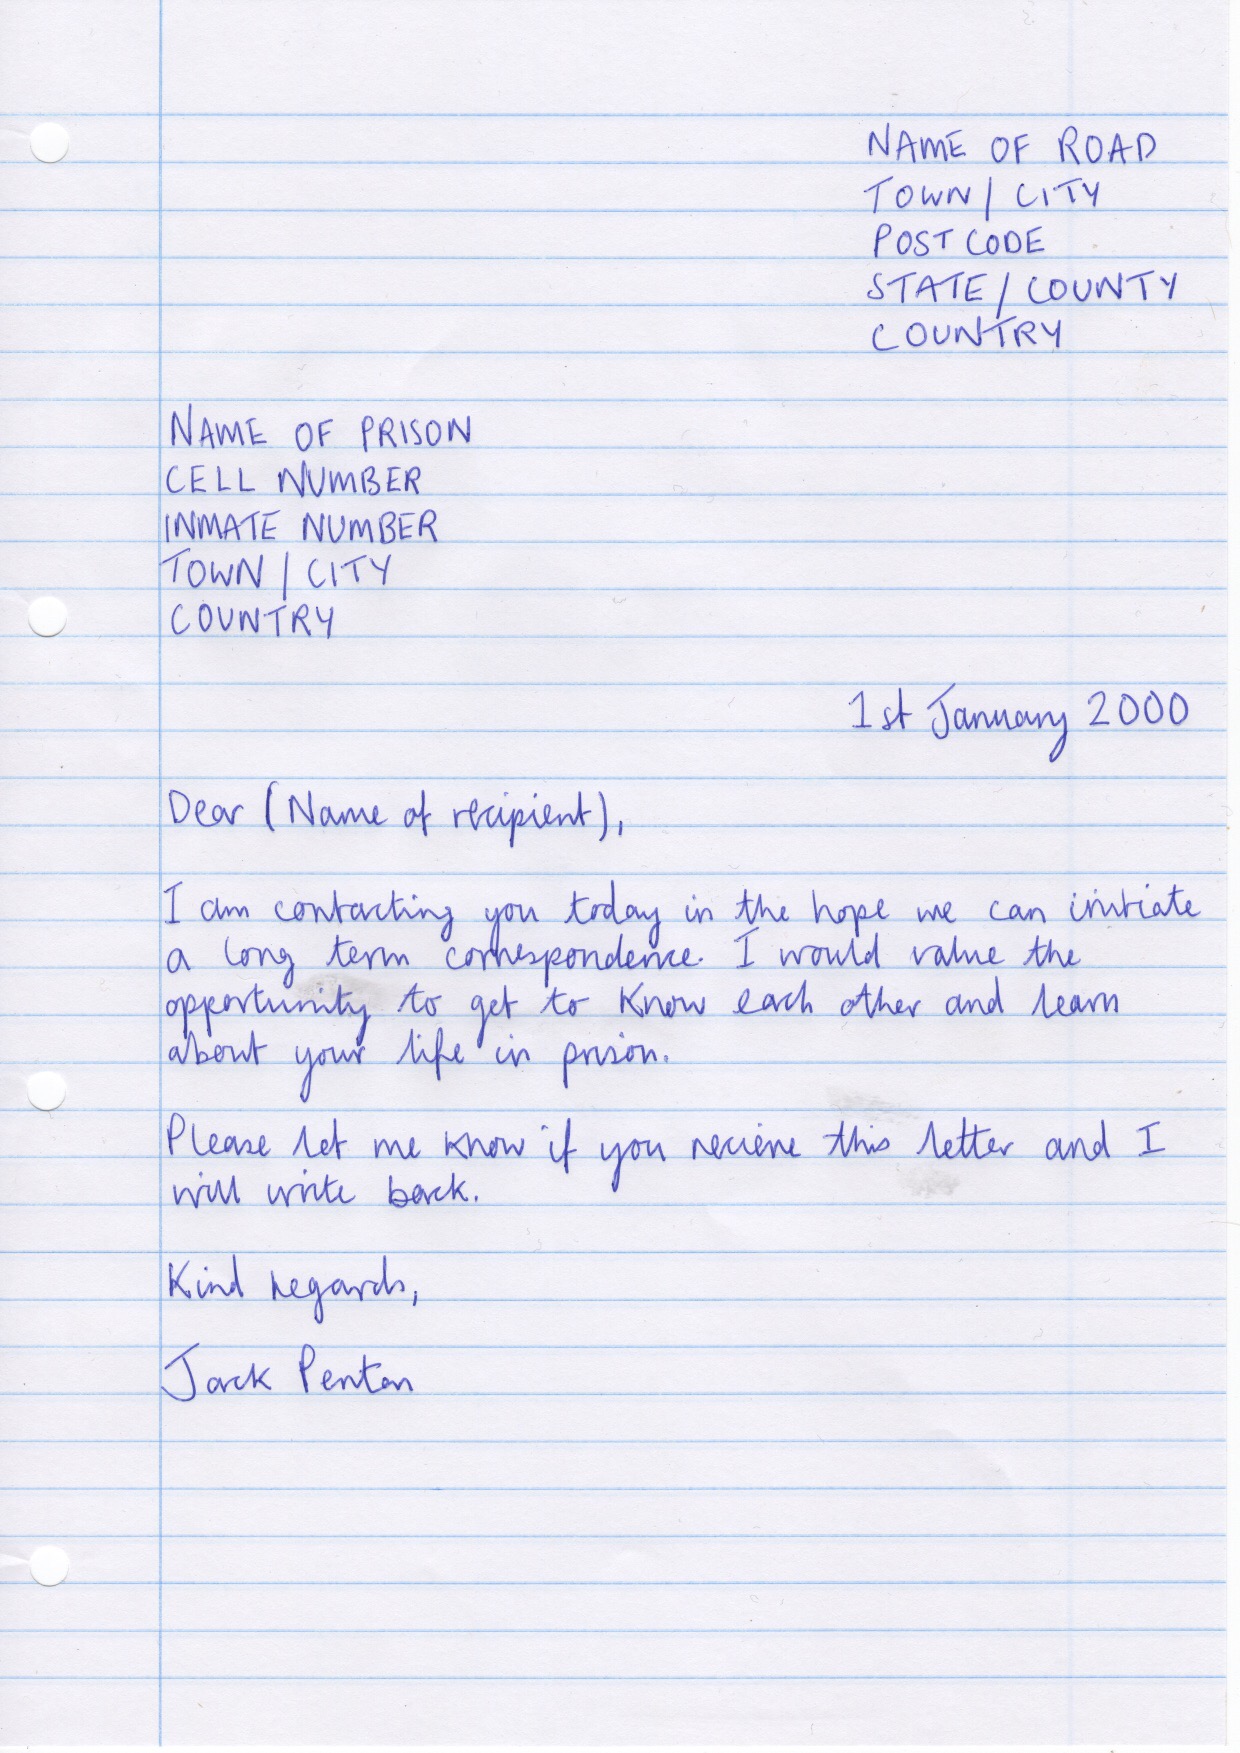 NAME OF ROAD
TOWN / CITY
POST CODE
STATE / COUNTY
COUNTRY
NAME OF PRISON
CELL NUMBER
INMATE NUMBER
TOWN / CITY
COUNTRY
1st January 2000
Dear (Name of recipient),
I am contacting you today in the hope we can initiate
a long term correspondence. I would value the
opportunity to get to know each other and learn
about your life in prison.
Please let me know if you recieve this letter and I
will write back.
Kind regards,
Jack Penton